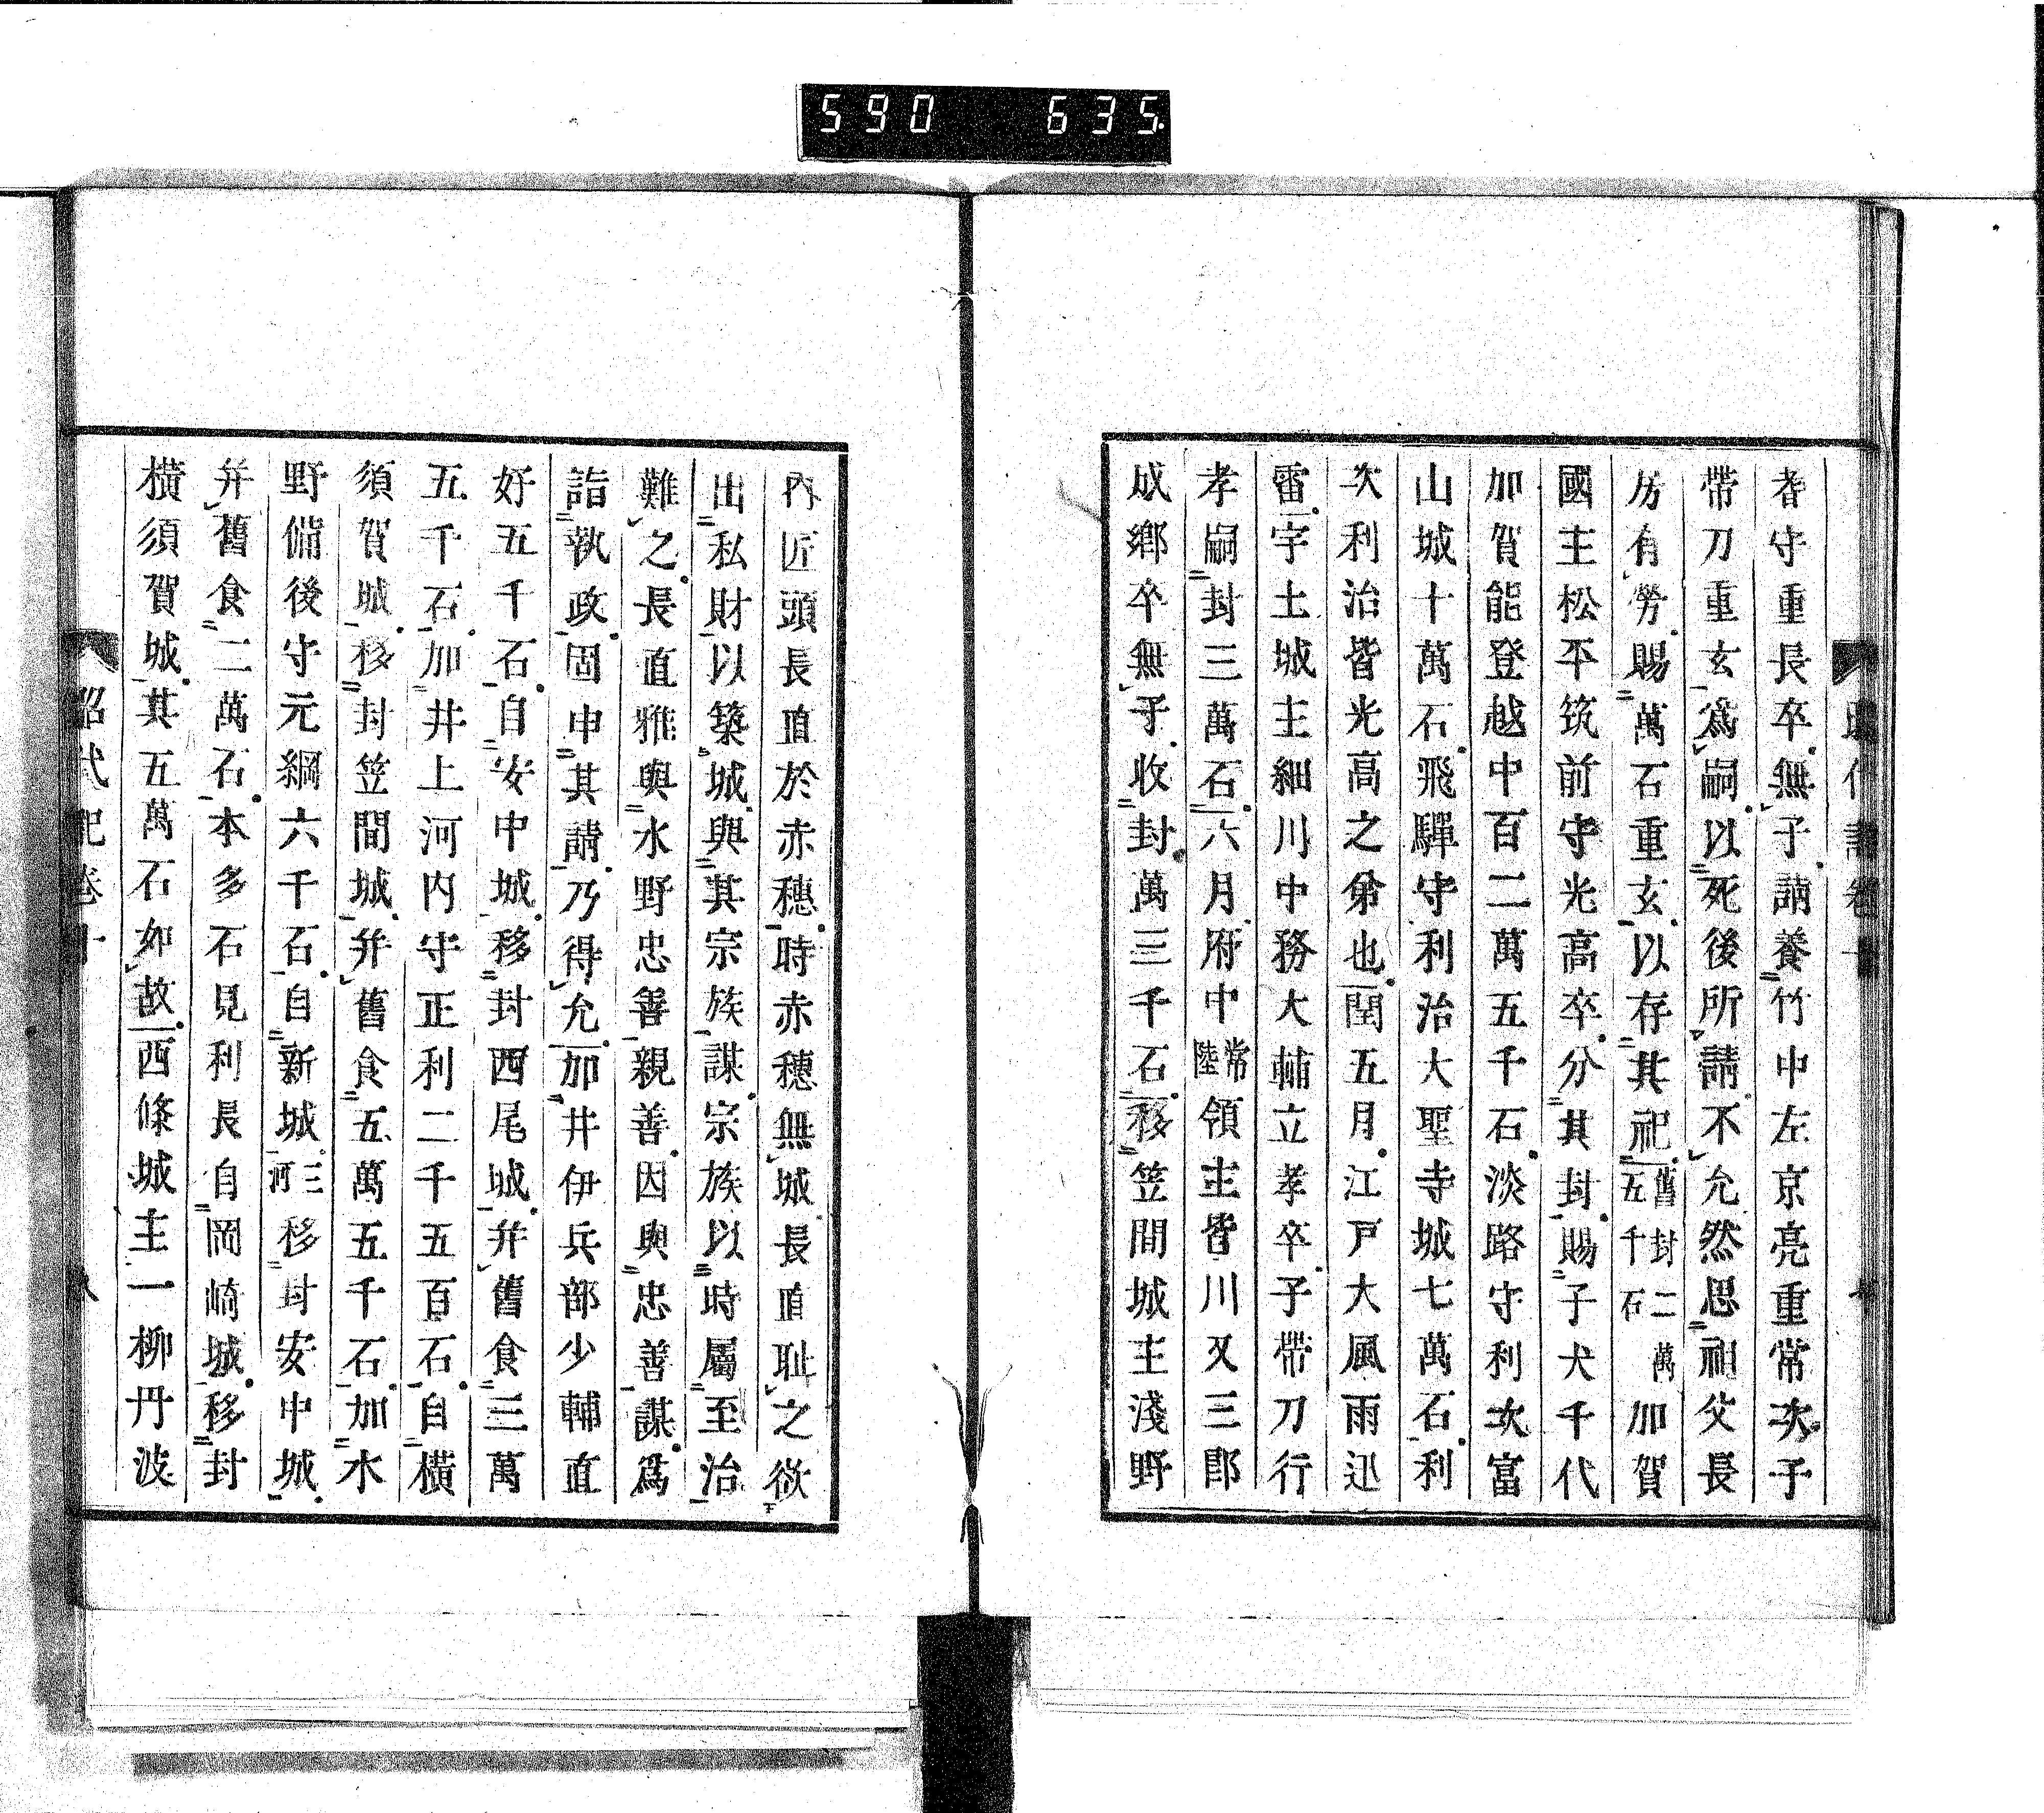 590 635
耆守重長卒無子請養竹中左京亮重常次子
帶刀重玄爲嗣以死後所請不允然思祖父長
房有勞賜萬石重玄以存其祀舊封二萬五千石加賀
國主松平筑前守光高卒分其封賜子犬千代
加賀能登越中百二萬五千石淡路守利次富
山城十萬石飛驒守利治大聖寺城七萬石利
次利治皆光高之弟也閏五月江戸大風雨迅
雷宇土城主細川中務大輔立孝卒子帶刀行
孝嗣封三萬石六月府中常陸領主皆川又三郎
成鄉卒無子收封萬三千石移笠間城主淺野
內匠頭長直於赤穗時赤穗無城長直耻之欲
出私財以築城與其宗族謀宗族以時屬至治
難之長直雅與水野忠善親善因與忠善謀爲
詣執政固申其請乃得允加井伊兵部少輔直
好五千石自安中城移封西尾城并舊食三萬
五千石加井上河內守正利二千五百石自橫
須賀城移封笠間城并舊食五萬五千石加水
野備後守元綱六千石自新城三河移封安中城
并舊食二萬石本多石見利長自岡崎城移封
橫須賀城其五萬石如故西條城主一柳丹波
昭武記卷十
八